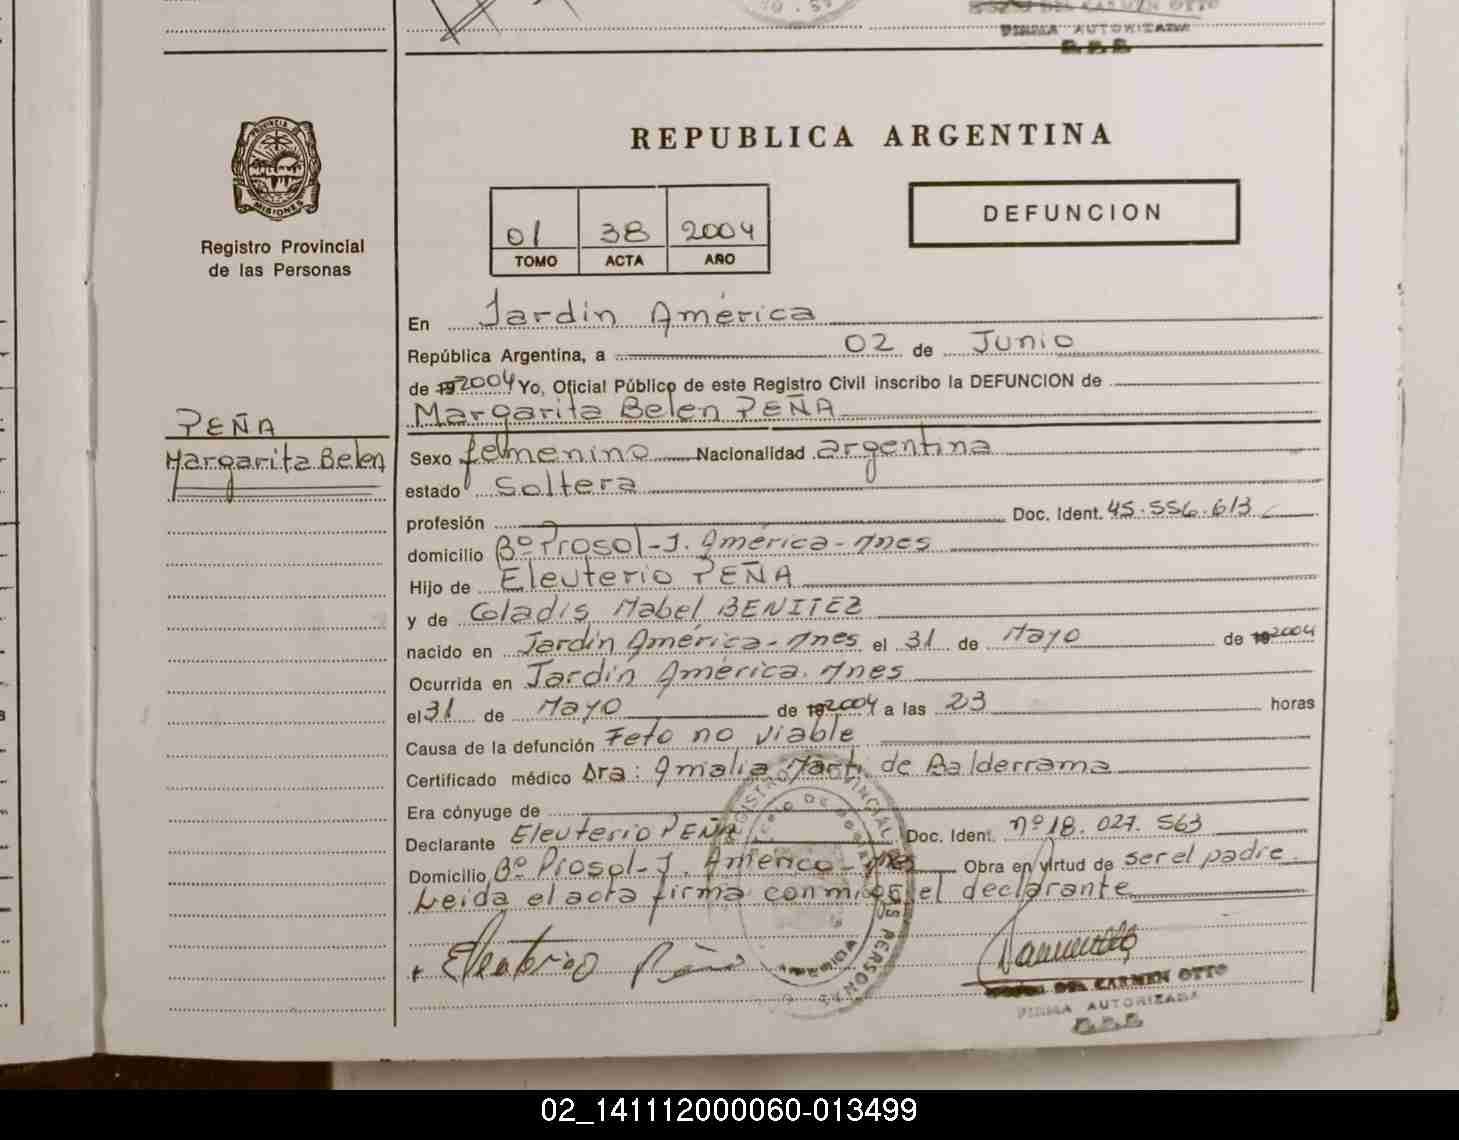 FIRMA AUTORIZADA
R.P.P.
PROVINCIA DE
MISIONES
Registro Provincial
de las Personas
REPUBLICA ARGENTINA
01 38 2004
TOMO ACTA AÑO
DEFUNCION
En Jardín América
República Argentina, a 02 de Junio
de 19 2004 Yo, Oficial Público de este Registro Civil inscribo la DEFUNCION de
Margarita Belen PEÑA
PEÑA
Margarita Belen
Sexo femenino Nacionalidad argentina
estado Soltera
profesión Doc. Ident. 45.556.613
domicilio Bº Prosol-J. América-Mnes
Hijo de Eleuterio PEÑA
y de Gladis Mabel BENITEZ
nacido en Jardín América-Mnes el 31 de Mayo de 19 2004
Ocurrida en Jardín América. Mnes
el 31 de Mayo de 19 2004 a las 23 horas
Causa de la defunción Feto no viable
Certificado médico Dra: Amalia Marti de Balderrama
Era cónyuge de
Declarante Eleuterio PEÑA Doc. Ident. nº 18.027.563
Domicilio Bº Prosol-J. América-Mnes Obra en virtud de ser el padre
Leida el acta firma conmigo el declarante
Eleuterio Peña
DEL CARMEN OTTO
FIRMA AUTORIZADA
R.P.P.
02_141112000060-013499